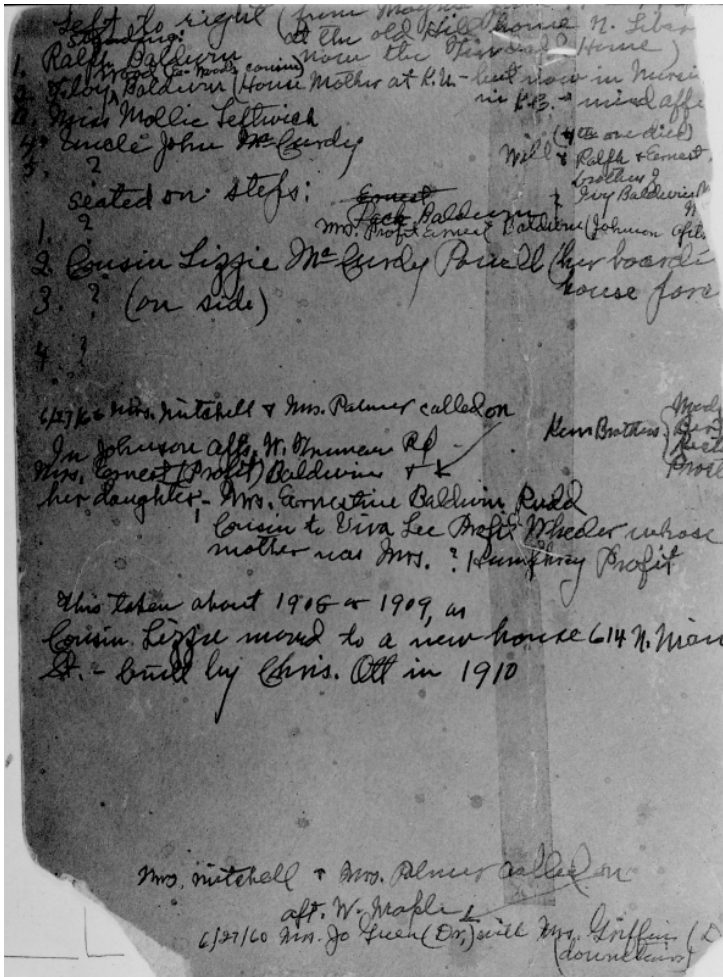 Left to right (from
Standing: at the old Hill home N. Liber
1. Ralph Baldwin now the Funeral Home)
Wood (a Woods cousin)
2. Baldwin (House Mother at K.U. - but now in Nursi
in K.B. - mind affe
3. Miss Mollie Leftwich
4. Uncle John McCurdy
(4th one died)
5. ? Will & Ralph & Ernest
brothers of
seated on steps: Ernest Ivy Baldwin
1. ? Jack Baldwin
Mrs. Profit Ernest Baldwin (Johnson Apts.
2. Cousin Lizzie McCurdy Powell (her board
3. ? (on side) house fore
4. ?
6/27/60 Mrs. Mitchell & Mrs. Palmer called on
In Johnson apts. W. Truman Rd
Kerr Brothers
Mrs. Ernest (Profit) Baldwin &
her daughter - Mrs. Earnestine Baldwin Rudd
Cousin to Viva Lee Profit Wheeler whose
mother was Mrs. ? Humphrey Profit
This taken about 1908 or 1909, as
Cousin Lizzie moved to a new house 614 N. Main
St. - built by Chris. Ott in 1910
Mrs. Mitchell & Mrs. Palmer called on
apt. W. Maple
6/27/60 Mrs. Jo Green (Dr.) will Mrs. Griffin (D
(downstairs)